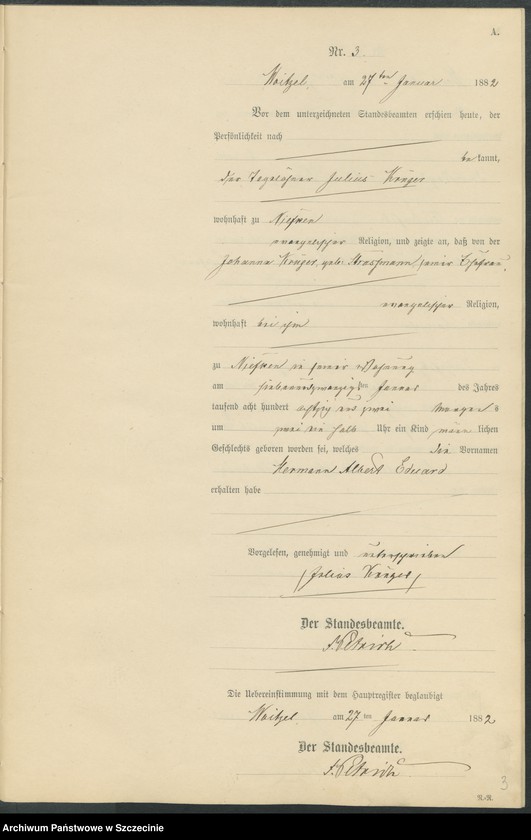 A.
Nr. 3.
Woitzel, am 27ten Januar 1882
Vor dem unterzeichneten Standesbeamten erschien heute, der
Persönlichkeit nach
bekannt,
der Tagelöhner Julius Krüger
wohnhaft zu
evangelischer Religion, und zeigte an, daß von der
Johanna Krüger, geb. seiner Ehefrau,
evangelischer Religion,
wohnhaft bei ihm
zu in seiner Wohnung
am siebenundzwanzigsten Januar des Jahres
tausend acht hundert achtzig und zwei Morgens
um zwei ein halb Uhr ein Kind männlichen
Geschlechts geboren worden sei, welches die Vornamen
Hermann Albert Eduard
erhalten habe
Vorgelesen, genehmigt und unterschrieben
Julius Krüger
Der Standesbeamte.
Die Uebereinstimmung mit dem Hauptregister beglaubigt
Woitzel, am 27ten Januar 1882
Der Standesbeamte.
3
Archiwum Państwowe w Szczecinie